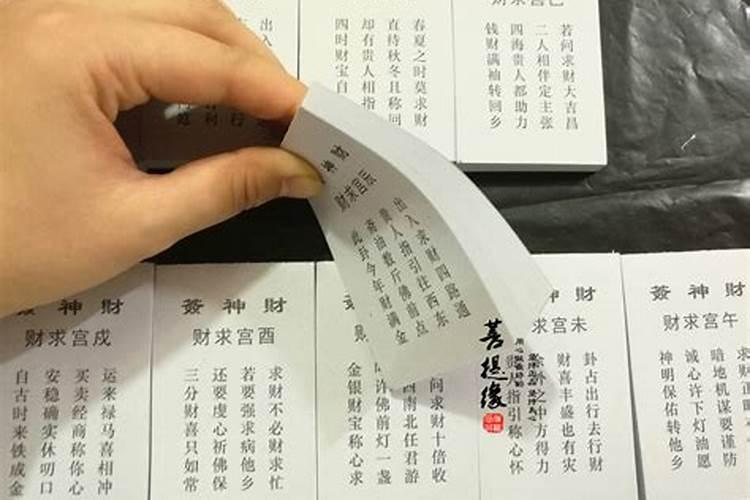 出入
春夏之时莫求财
直待秋冬且称回
却有贵人相指
四时财宝自
若问求财大吉昌
二人相伴定主张
四海贵人都助力
钱财满袖转回乡
出入求财四路通
贵人指引往西东
斋油数斤佛前点
此卦今年财满金
簽神財
财求宫戍
运来禄马喜相冲
买卖经商称你心
安稳确实休叨口
自古时来铁成金
簽神財
财求宫酉
求财不必财求忙
若要强求病他乡
还要虔心祈佛保
三分财喜只如常
问求财十倍收
西南北任君游
许佛前灯一盏
金银财宝称心求
財
求宫未
卦占出行去行财
财喜丰盛也有灾
外之中方得力
指引称心怀
簽神財
财求宫午
暗地机谋要谨防
诚心许下灯油愿
神明保佑转他乡
菩提缘